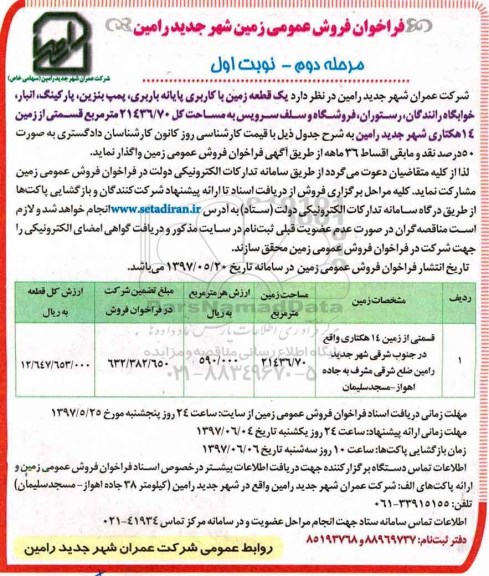 فراخوان فروش عمومی زمین شهر جدید رامین
مرحله دوم - نوبت اول
شرکت عمران شهر جدید رامین (سهامی خاص)
شرکت عمران شهر جدید رامین در نظر دارد یک قطعه زمین با کاربری پایانه باربری، پمپ بنزین، پارکینگ، انبار،
خوابگاه رانندگان، رستوران، فروشگاه و سلف سرویس به مساحت کل ۲۱۴۳۶/۷۰ مترمربع قسمتی از زمین
۱۴هکتاری شهر جدید رامین به شرح جدول ذیل با قیمت کارشناسی روز کانون کارشناسان دادگستری به صورت
۵۰درصد نقد و مابقی اقساط ۳۶ ماهه از طریق آگهی فراخوان فروش عمومی زمین واگذار نماید.
لذا از کلیه متقاضیان دعوت می‌گردد از طریق سامانه تدارکات الکترونیکی دولت در فراخوان فروش عمومی زمین
مشارکت نماید. کلیه مراحل برگزاری فروش از دریافت اسناد تا ارائه پیشنهاد شرکت‌کنندگان و بازگشایی پاکت‌ها
از طریق درگاه سامانه تدارکات الکترونیکی دولت (ستاد) به آدرس www.setadiran.ir انجام خواهد شد و لازم
است مناقصه‌گران در صورت عدم عضویت قبلی ثبت‌نام در سایت مذکور و دریافت گواهی امضای الکترونیکی را
جهت شرکت در فراخوان فروش عمومی زمین محقق سازند.
تاریخ انتشار فراخوان فروش عمومی زمین در سامانه تاریخ ۱۳۹۷/۰۵/۲۰ می‌باشد.
ردیف مشخصات زمین مساحت زمین مترمربع ارزش هر مترمربع به ریال مبلغ تضمین شرکت در فراخوان فروش ارزش کل قطعه به ریال
۱ قسمتی از زمین ۱۴ هکتاری واقع در جنوب شرقی شهر جدید رامین ضلع شرقی مشرف به جاده اهواز-مسجدسلیمان ۲۱۴۳۶/۷۰ ۵۹۰/۰۰۰ ۶۳۲/۳۸۲/۶۵۰ ۱۲/۶۴۷/۶۵۳/۰۰۰
ParsNamadData
پایگاه اطلاع رسانی مناقصه و مزایده
۰۲۱-۸۸۳۴۹۶۷۰-۵
مهلت زمانی دریافت اسناد فراخوان فروش عمومی زمین از سایت: ساعت ۲۴ روز پنجشنبه مورخ ۱۳۹۷/۵/۲۵
مهلت زمانی ارائه پیشنهاد: ساعت ۲۴ روز یکشنبه تاریخ ۱۳۹۷/۰۶/۰۴
زمان بازگشایی پاکت‌ها: ساعت ۱۰ روز سه‌شنبه تاریخ ۱۳۹۷/۰۶/۰۶
اطلاعات تماس دستگاه برگزار کننده جهت دریافت اطلاعات بیشتر در خصوص اسناد فراخوان فروش عمومی زمین و
ارائه پاکت‌های الف: شرکت عمران شهر جدید رامین واقع در شهر جدید رامین (کیلومتر ۳۸ جاده اهواز- مسجدسلیمان)
تلفن: ۳۳۹۱۵۱۵۵-۰۶۱
اطلاعات تماس سامانه ستاد جهت انجام مراحل عضویت و در سامانه مرکز تماس ۴۱۹۳۴-۰۲۱
دفتر ثبت‌نام: ۸۸۹۶۹۷۳۷ و ۸۵۱۹۳۷۶۸
روابط عمومی شرکت عمران شهر جدید رامین